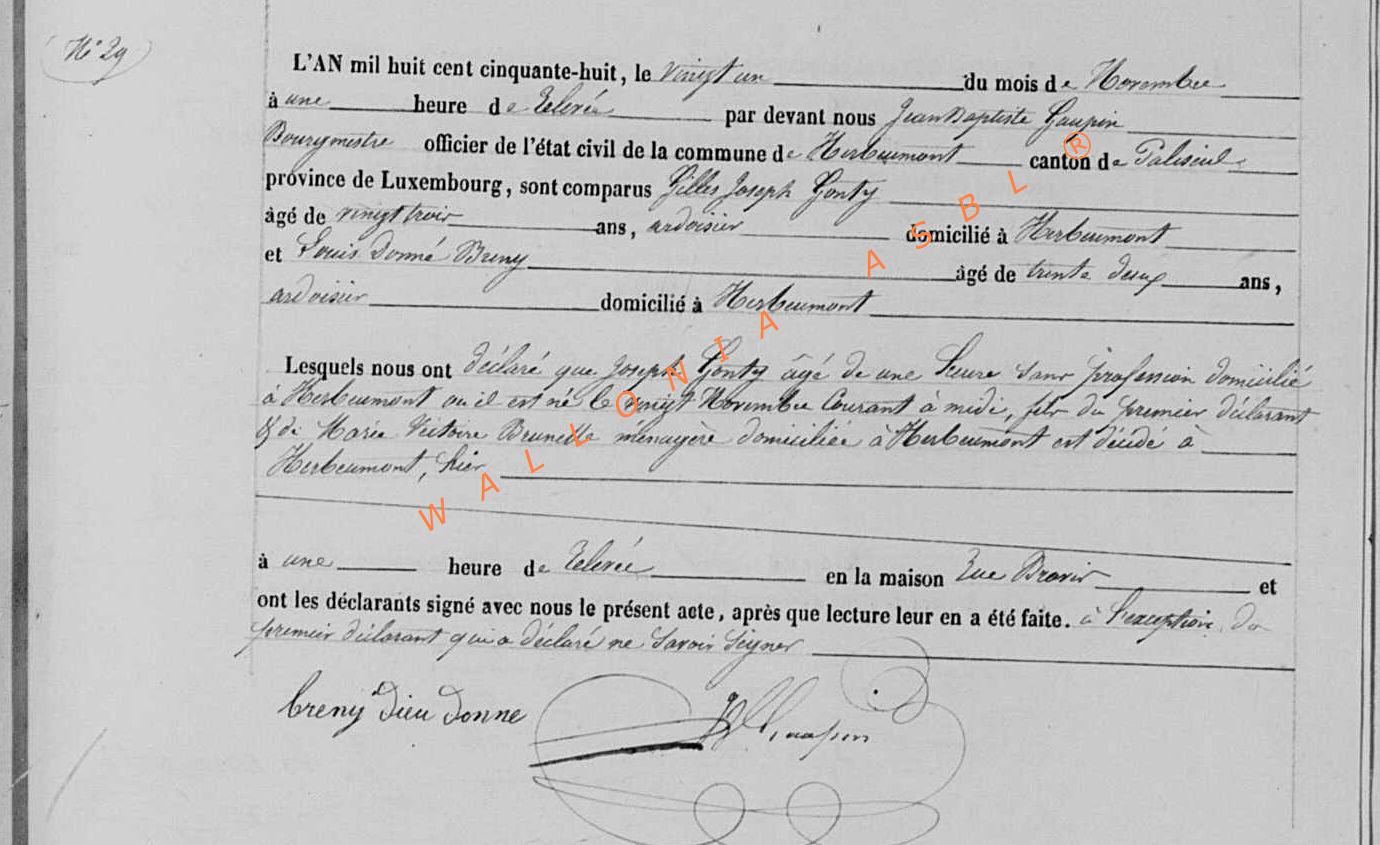 N° 29
L'AN mil huit cent cinquante-huit, le vingt un du mois de Novembre
à une heure de relevée par devant nous Jean Baptiste Gaupin
Bourgmestre officier de l'état civil de la commune de Herbeumont canton de Paliseul
province de Luxembourg, sont comparus Gilles Joseph Gonty
âgé de vingt trois ans, ardoisier domicilié à Herbeumont
et Louis Donné Breny âgé de trente deux ans,
ardoisier domicilié à Herbeumont
Lesquels nous ont déclaré que Joseph Gonty âgé de une heure sans profession domicilié
à Herbeumont ou il est né le vingt Novembre Courant à midi, fils du premier déclarant
& de Marie Victoire Brunelle ménagère domiciliée à Herbeumont est décédé à
Herbeumont, hier
à une heure de relevée en la maison Rue et
ont les déclarants signé avec nous le présent acte, après que lecture leur en a été faite. à l'exception du
premier déclarant qui a déclaré ne savoir signer
breny dieu donne
WALLONIA ASBL ®